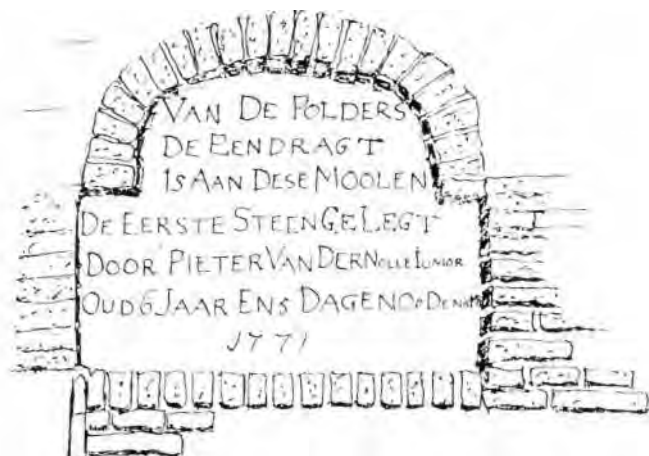 VAN DE POLDERS
DE EENDRAGT
IS AAN DESE MOOLEN
DE EERSTE STEEN GELEGT
DOOR PIETER VAN DER NOLLE IUNIOR
OUD 6 JAAR EN 5 DAGEN OP DEN
1771